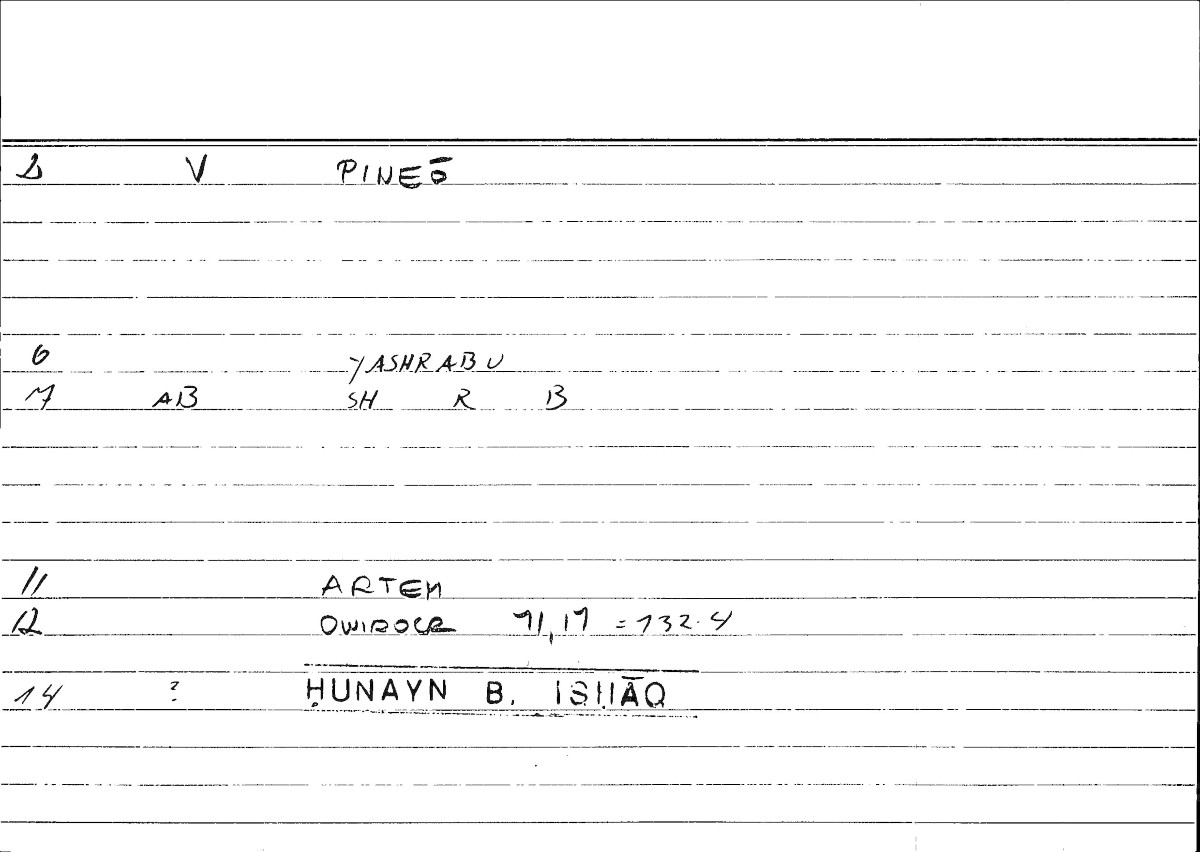 1 V PINEŌ
6 YASHRABU
7 AB SH R B
11 ARTEM
12 OWIROCR 71,17 = 132.4
14 ? ḤUNAYN B. ISḤĀQ